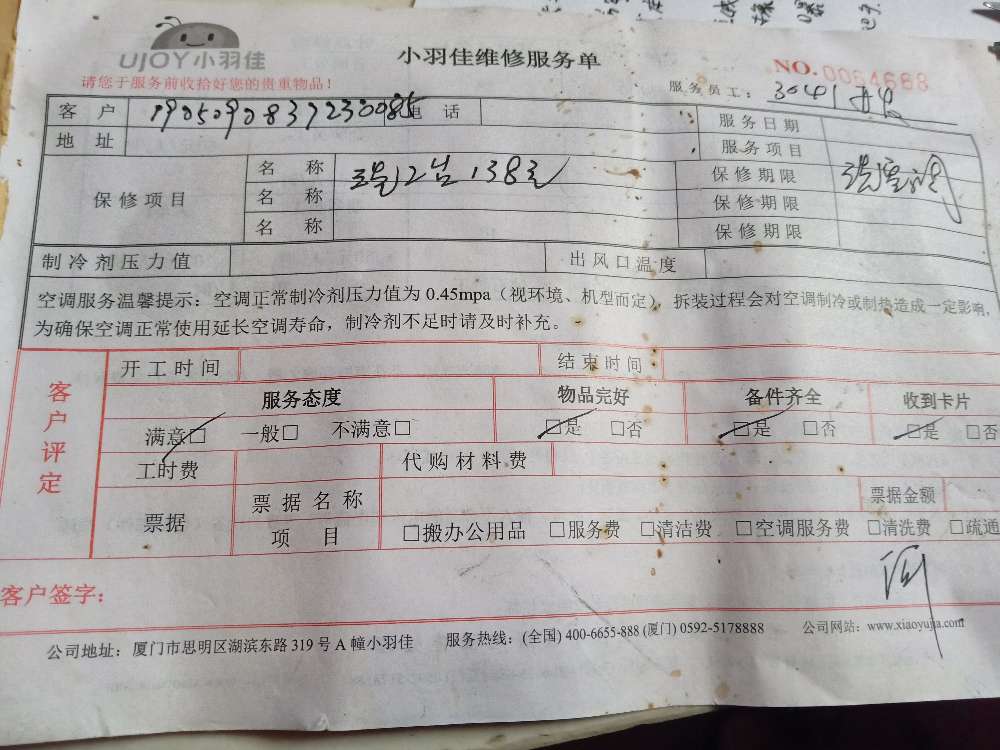 UJOY小羽佳
小羽佳维修服务单
NO.0054668
请您于服务前收拾好您的贵重物品！
服务员工：3041
客 户 190509083723008 电 话
服务日期
地 址
服务项目
保修项目
名 称 138元
保修期限
名 称
保修期限
名 称
保修期限
制冷剂压力值
出风口温度
空调服务温馨提示：空调正常制冷剂压力值为 0.45mpa（视环境、机型而定），拆装过程会对空调制冷或制热造成一定影响，
为确保空调正常使用延长空调寿命，制冷剂不足时请及时补充。
客户评定
开工时间
结束时间
服务态度 物品完好 备件齐全 收到卡片
满意□ 一般□ 不满意□ □是 □否 □是 □否 □是 □否
工时费
代购材料费
票据
票据名称
票据金额
项 目 □搬办公用品 □服务费 □清洁费 □空调服务费 □清洗费 □疏通
客户签字：
公司地址：厦门市思明区湖滨东路 319 号 A 幢小羽佳 服务热线：(全国) 400-6655-888 (厦门) 0592-5178888 公司网站：www.xiaoyujia.com